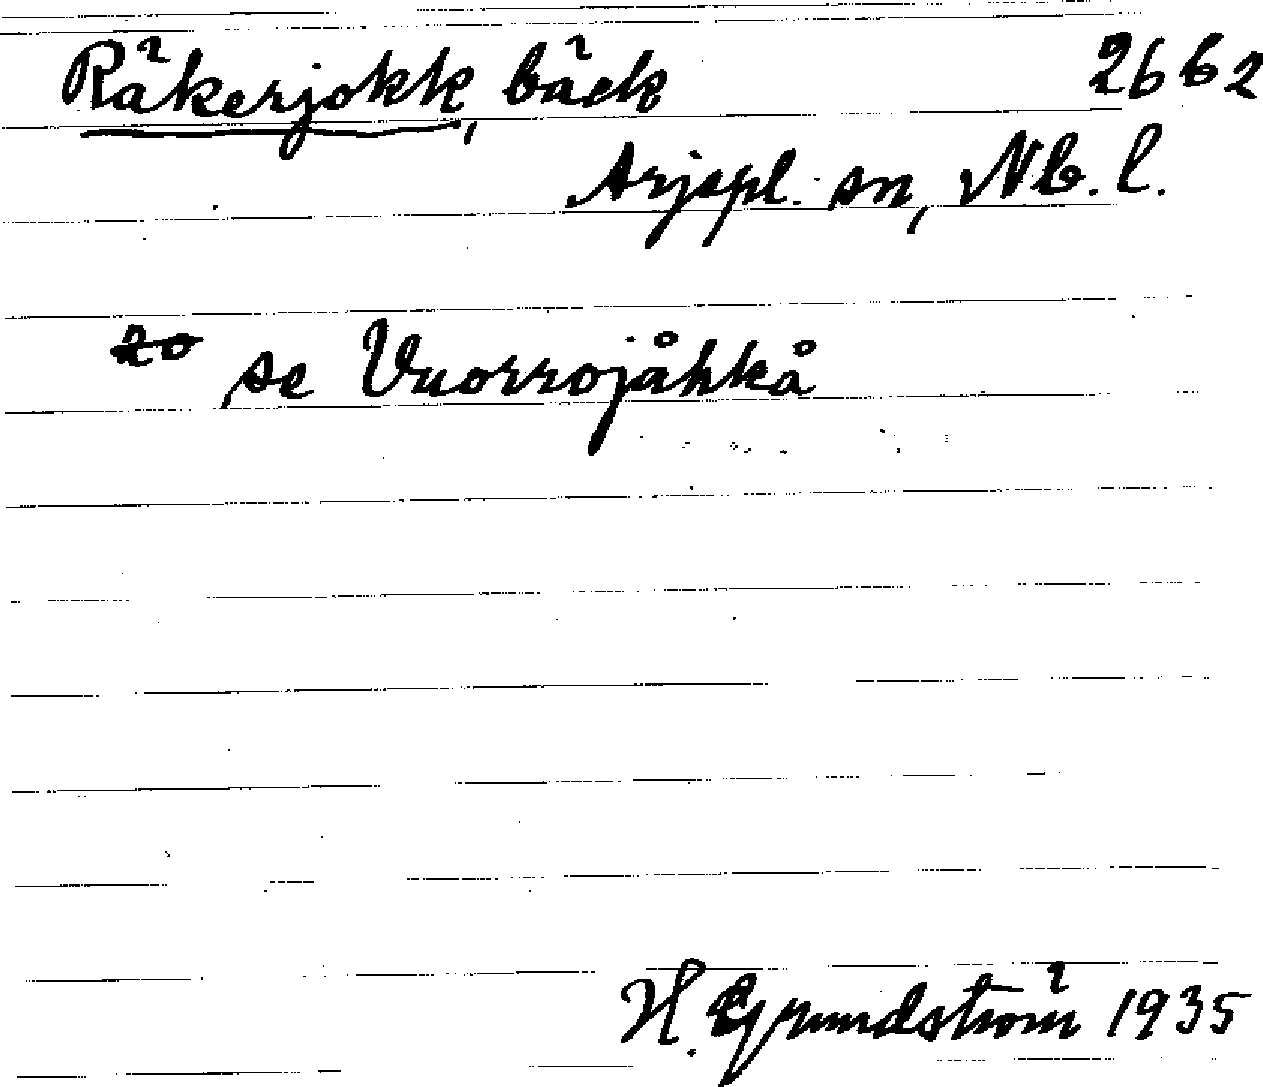 Räkerjokk, bäck 2662
Arjepl. sn, Nb. l.
se Vuorrojåhkå
H. Grundström 1935